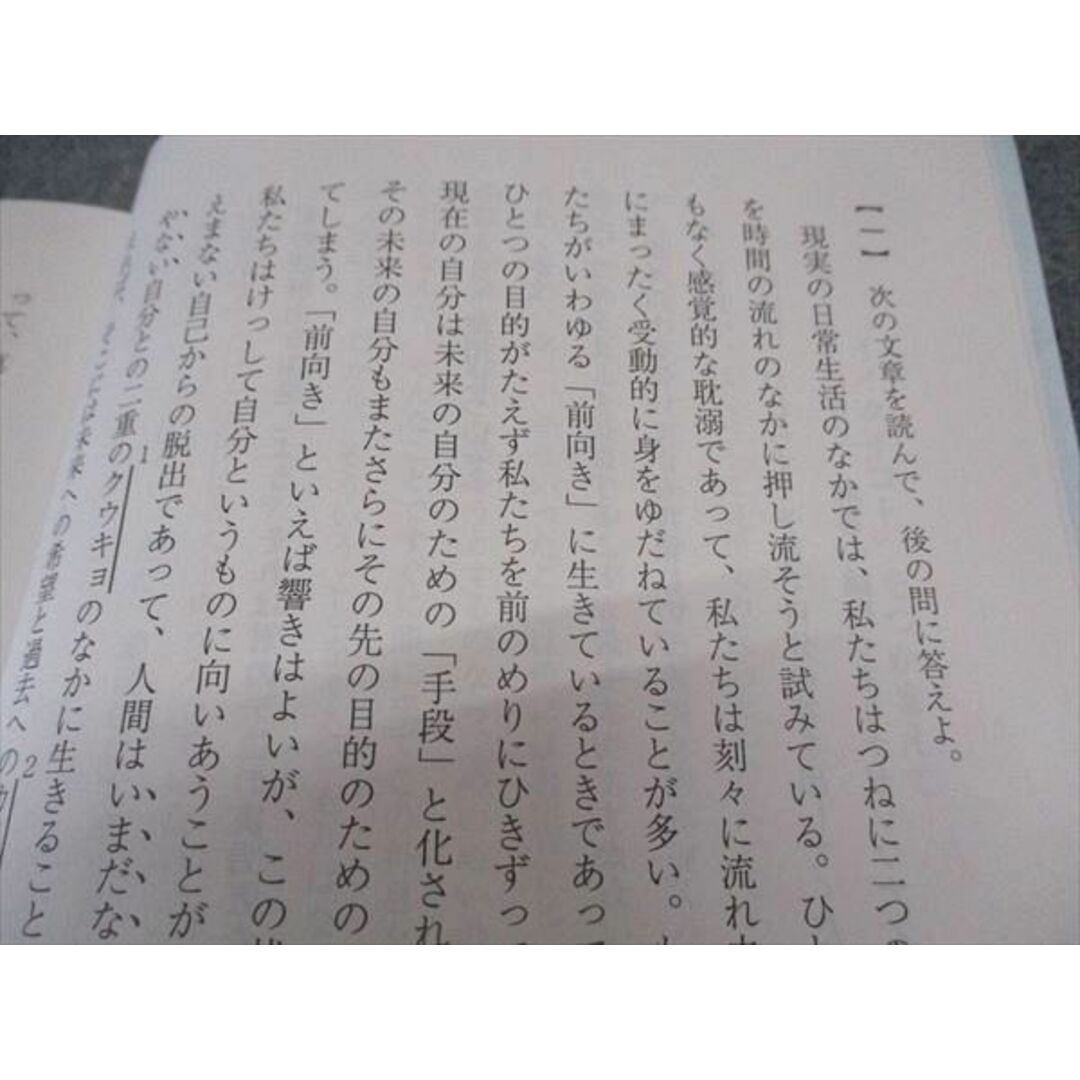 【一】 次の文章を読んで、後の問に答えよ。
現実の日常生活のなかでは、私たちはつねに二つの
を時間の流れのなかに押し流そうと試みている。ひ
もなく感覚的な耽溺であって、私たちは刻々に流れ
にまったく受動的に身をゆだねていることが多い。
たちがいわゆる「前向き」に生きているときであっ
ひとつの目的がたえず私たちを前のめりにひきずっ
現在の自分は未来の自分のための「手段」と化され
その未来の自分もまたさらにその先の目的のための
てしまう。「前向き」といえば響きはよいが、この
私たちはけっして自分というものに向いあうことが
えまない自己からの脱出であって、人間はいまだな
やない自分との二重のクウキョのなかに生きること
1
は未来への希望と過去への
2